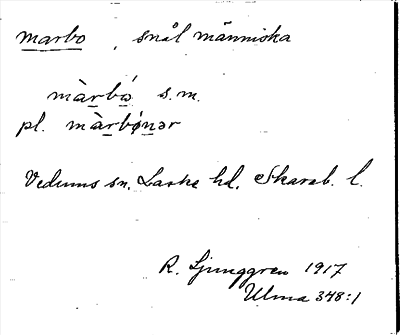 marbo , snål människa
màrbó s.m.
pl. màrbónər
Vedums sn. Laske hd. Skarab. l.
R. Ljunggren 1917
Ulma 348:1